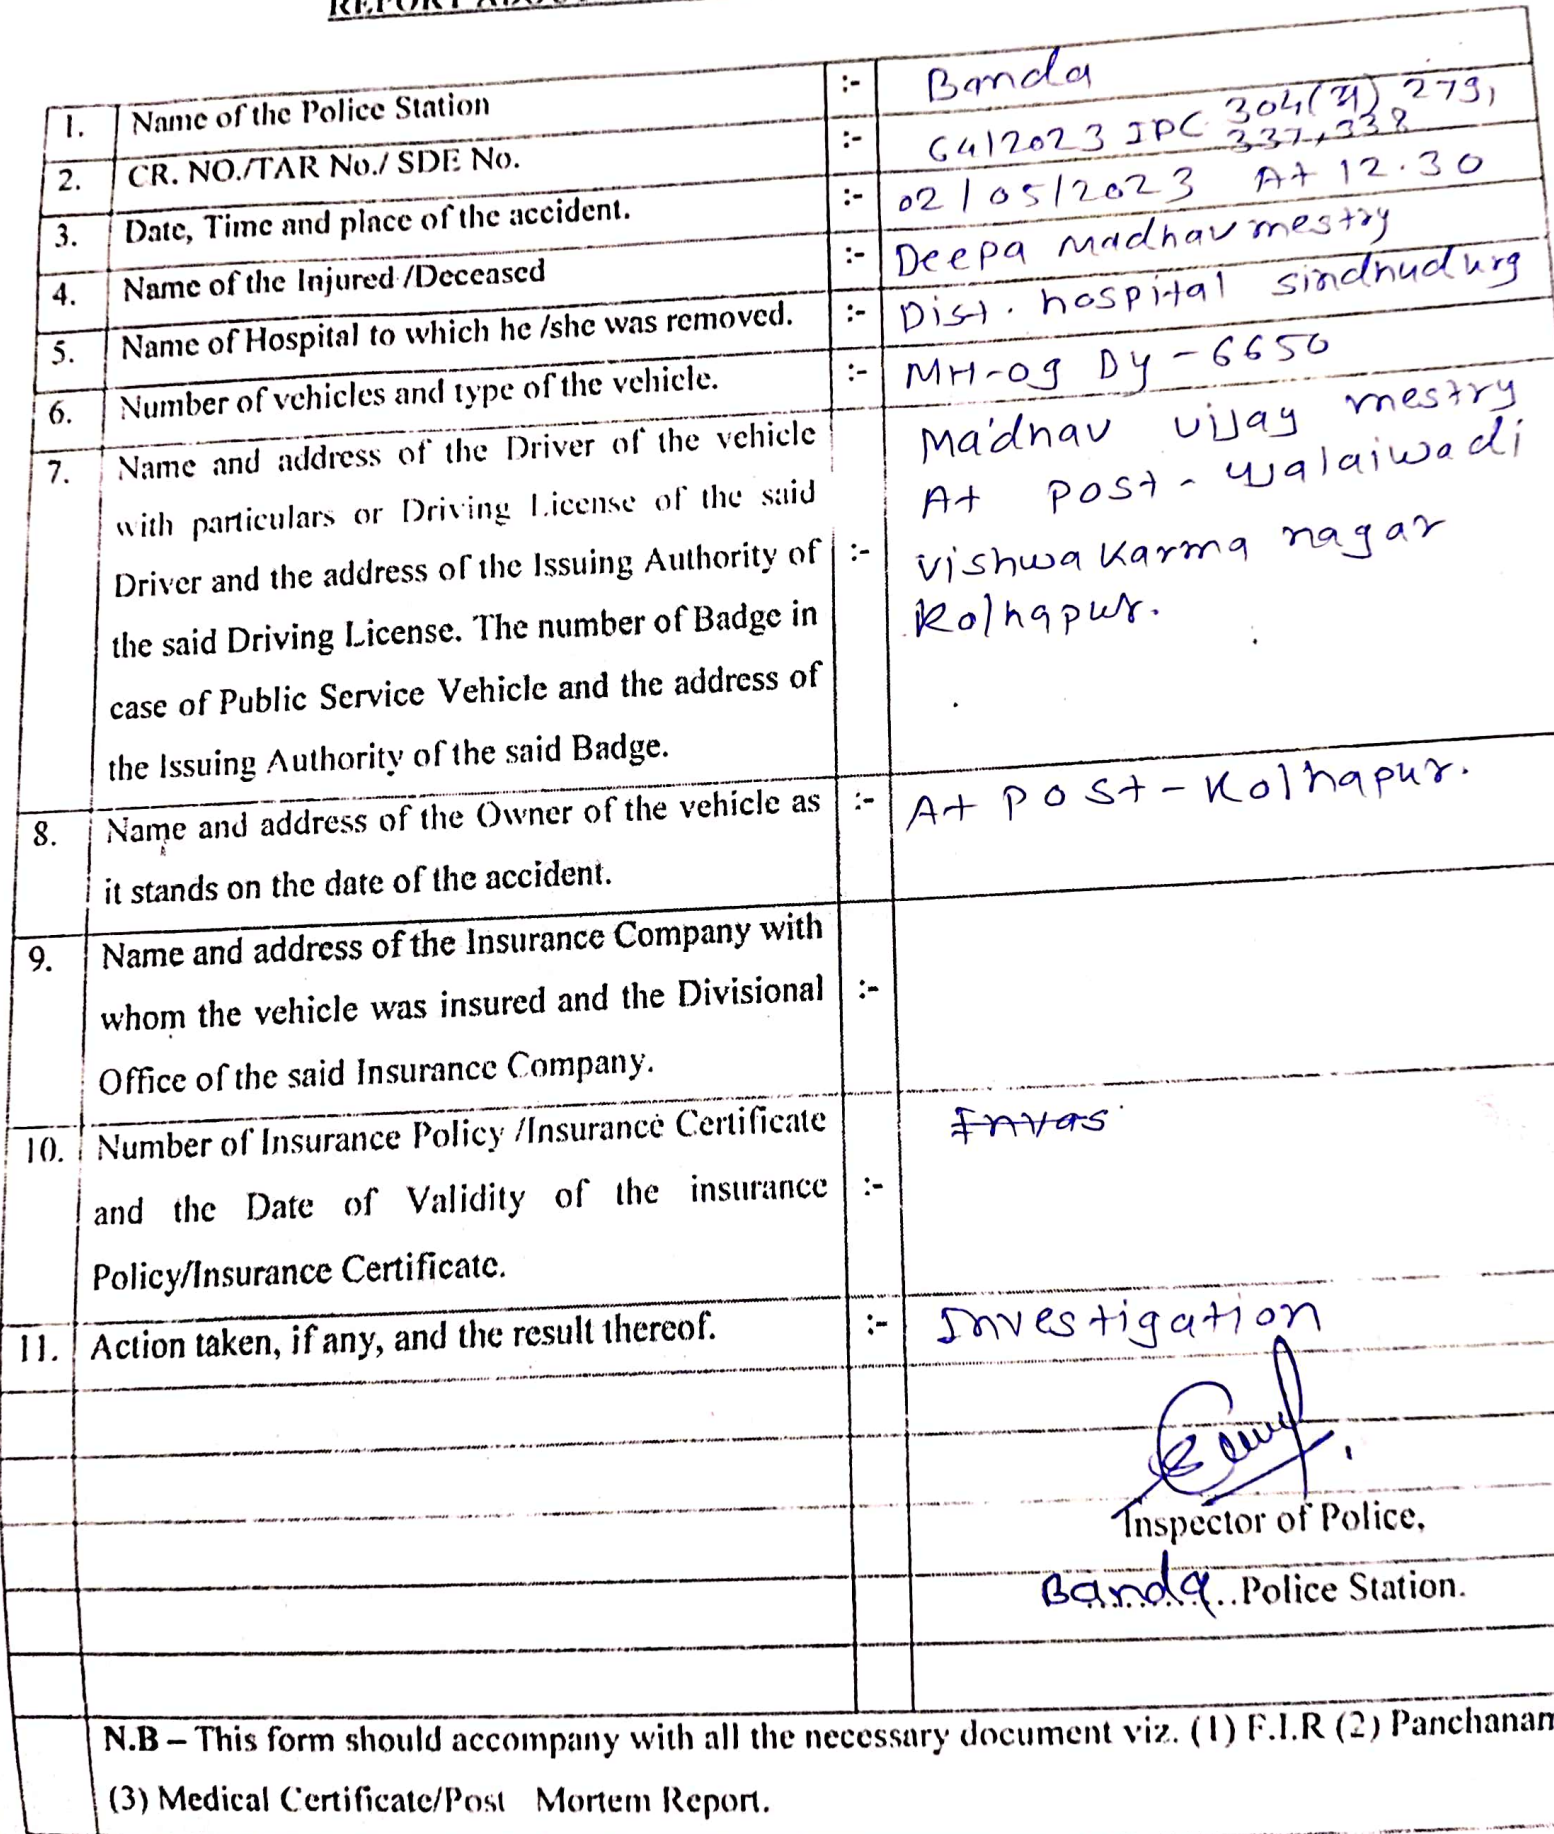 1. Name of the Police Station :- Banda
2. CR. NO./TAR No./ SDE No. :- 64/2023 IPC 304(अ) 279,
337, 338
3. Date, Time and place of the accident. :- 02/05/2023 At 12.30
4. Name of the Injured /Deceased :- Deepa Madhav mestry
5. Name of Hospital to which he /she was removed. :- Dist. hospital sindhudurg
6. Number of vehicles and type of the vehicle. :- MH-09 Dy-6650
7. Name and address of the Driver of the vehicle
with particulars or Driving License of the said
Driver and the address of the Issuing Authority of
the said Driving License. The number of Badge in
case of Public Service Vehicle and the address of
the Issuing Authority of the said Badge.
:-
Madhav vijay mestry
At post - walaiwadi
vishwakarma nagar
Kolhapur.
8. Name and address of the Owner of the vehicle as
it stands on the date of the accident.
:- At post - Kolhapur.
9. Name and address of the Insurance Company with
whom the vehicle was insured and the Divisional
Office of the said Insurance Company.
:-
10. Number of Insurance Policy /Insurance Certificate
and the Date of Validity of the insurance
Policy/Insurance Certificate.
:-
11. Action taken, if any, and the result thereof. :- Investigation
Inspector of Police,
Banda Police Station.
N.B – This form should accompany with all the necessary document viz. (1) F.I.R (2) Panchanam
(3) Medical Certificate/Post Mortem Report.